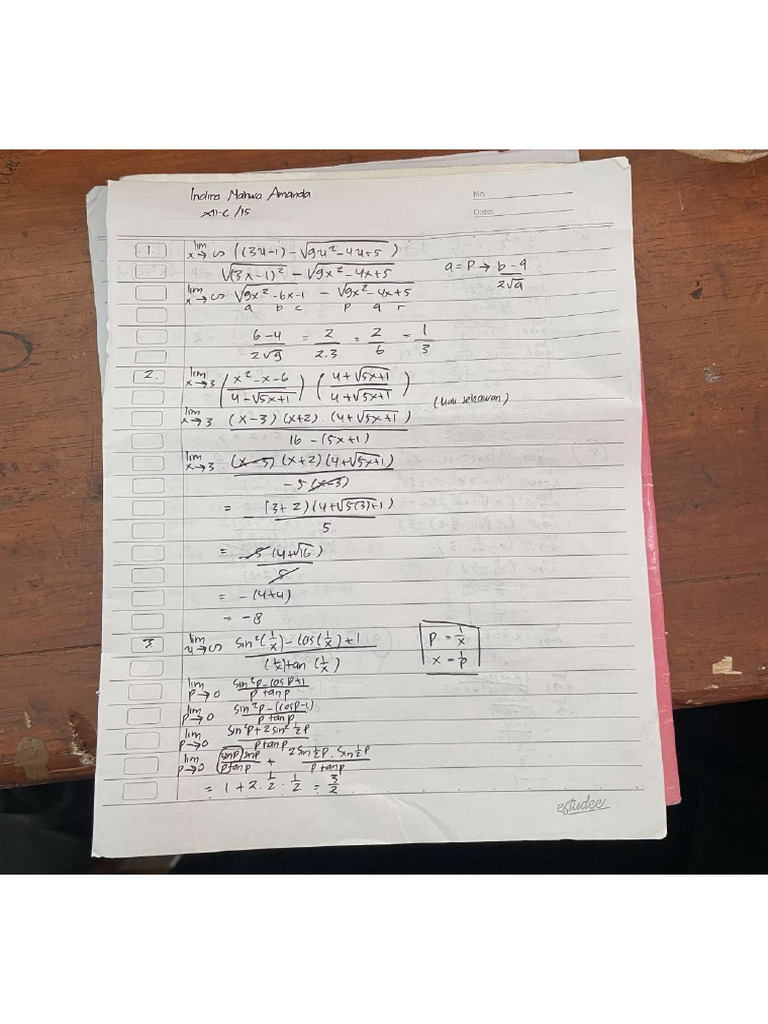 Indira Mahwa Amanda
XII-C /15
No.
Date:
1. lim x→∞ ((3x-1) - √9x²-4x+5 )
√(3x-1)² - √9x²-4x+5
a = P → b-q / 2√a
lim x→∞ √9x²-6x-1 - √9x²-4x+5
a b c p q r
6-4 / 2√9 = 2 / 2.3 = 2 / 6 = 1 / 3
2. lim x→3 (x²-x-6 / 4-√5x+1) (4+√5x+1 / 4+√5x+1)
(kali sekawan)
lim x→3 (x-3)(x+2).(4+√5x+1) / 16-(5x+1)
lim x→3 (x-3)(x+2)(4+√5x+1) / -5(x-3)
= (3+2)(4+√5(3)+1) / 5
= -5(4+√16) / 5
= -(4+4)
= -8
3. lim x→∞ sin²(1/x) - cos(1/x)+1 / (1/x)tan(1/x)
P = 1/x
x = 1/p
lim p→0 sin²p-cosp+1 / p tanp
lim p→0 sin²p-(cosp-1) / p tanp
lim p→0 sin²p+2sin²½p / p tanp
lim p→0 sinp sinp / p tanp + 2sin½p.sin½p / p tanp
= 1+2.½.½ = 3/2
estudee